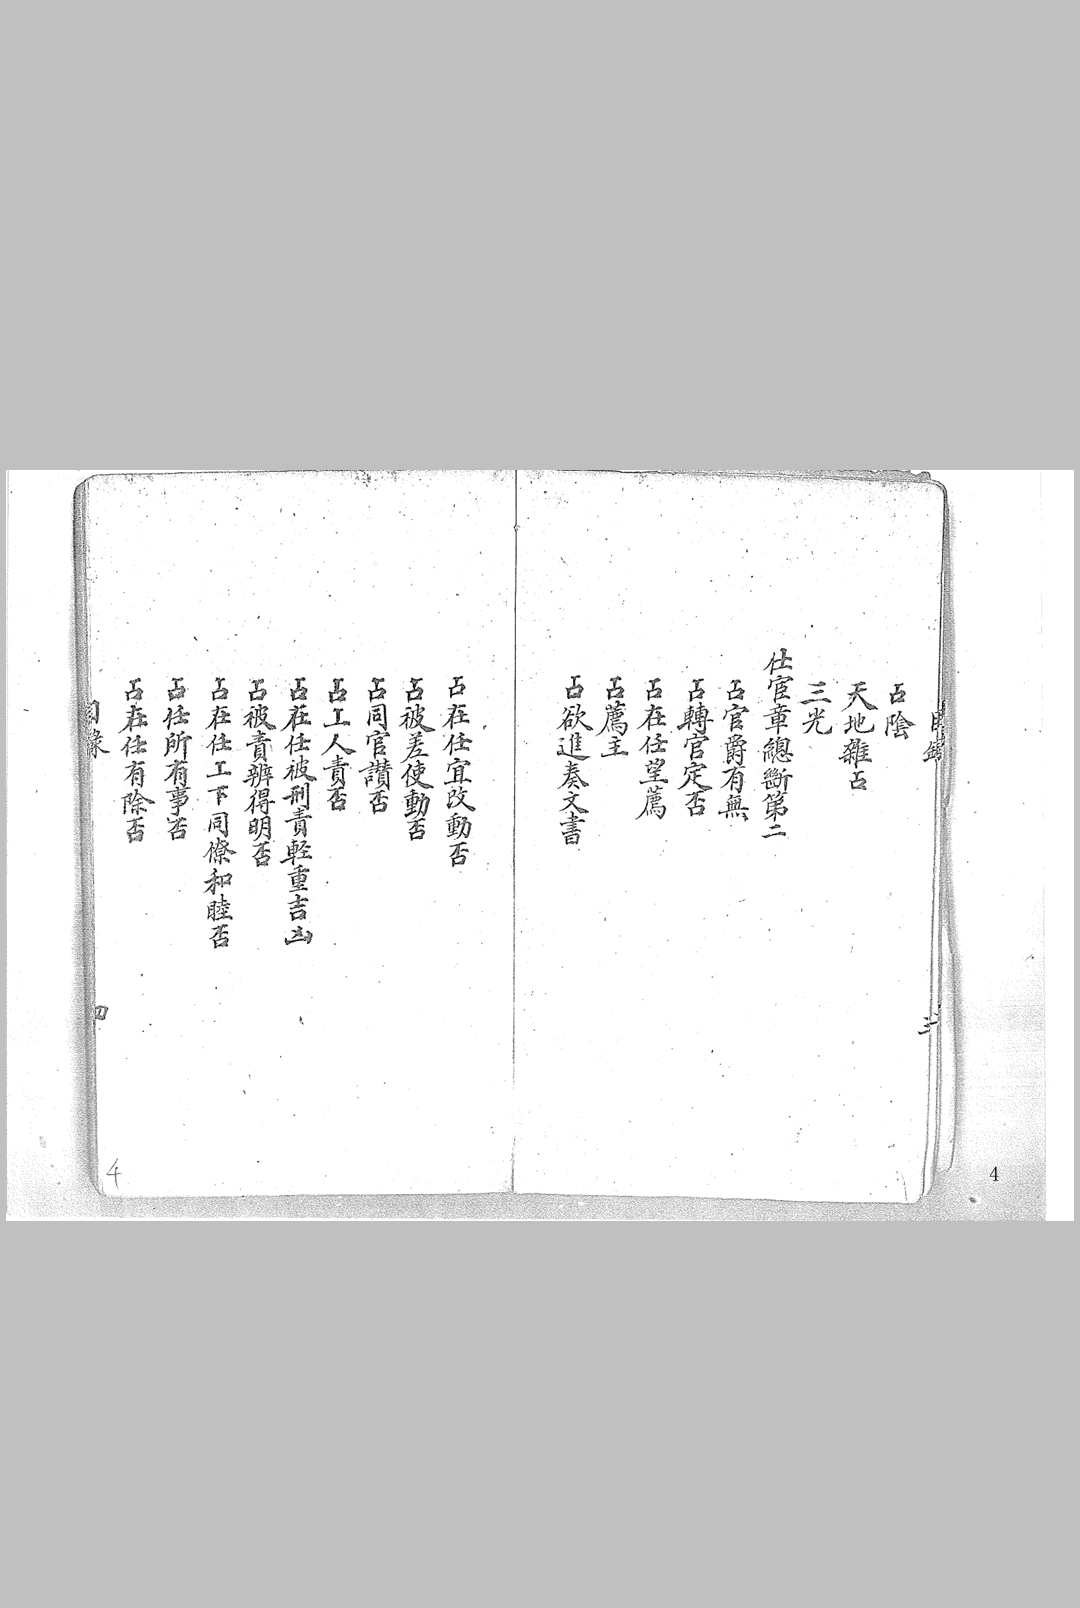 占陰
天地雜占
三光
仕官章總斷第二
占官爵有無
占轉官定否
占在任望薦
占薦主
占欲進奏文書
占在任宜改動否
占被差使動否
占同官讃否
占工人責否
占在任被刑責輕重吉凶
占被責辨得明否
占在任工下同僚和睦否
占任所有事否
占在任有除否
目錄
四
4
4